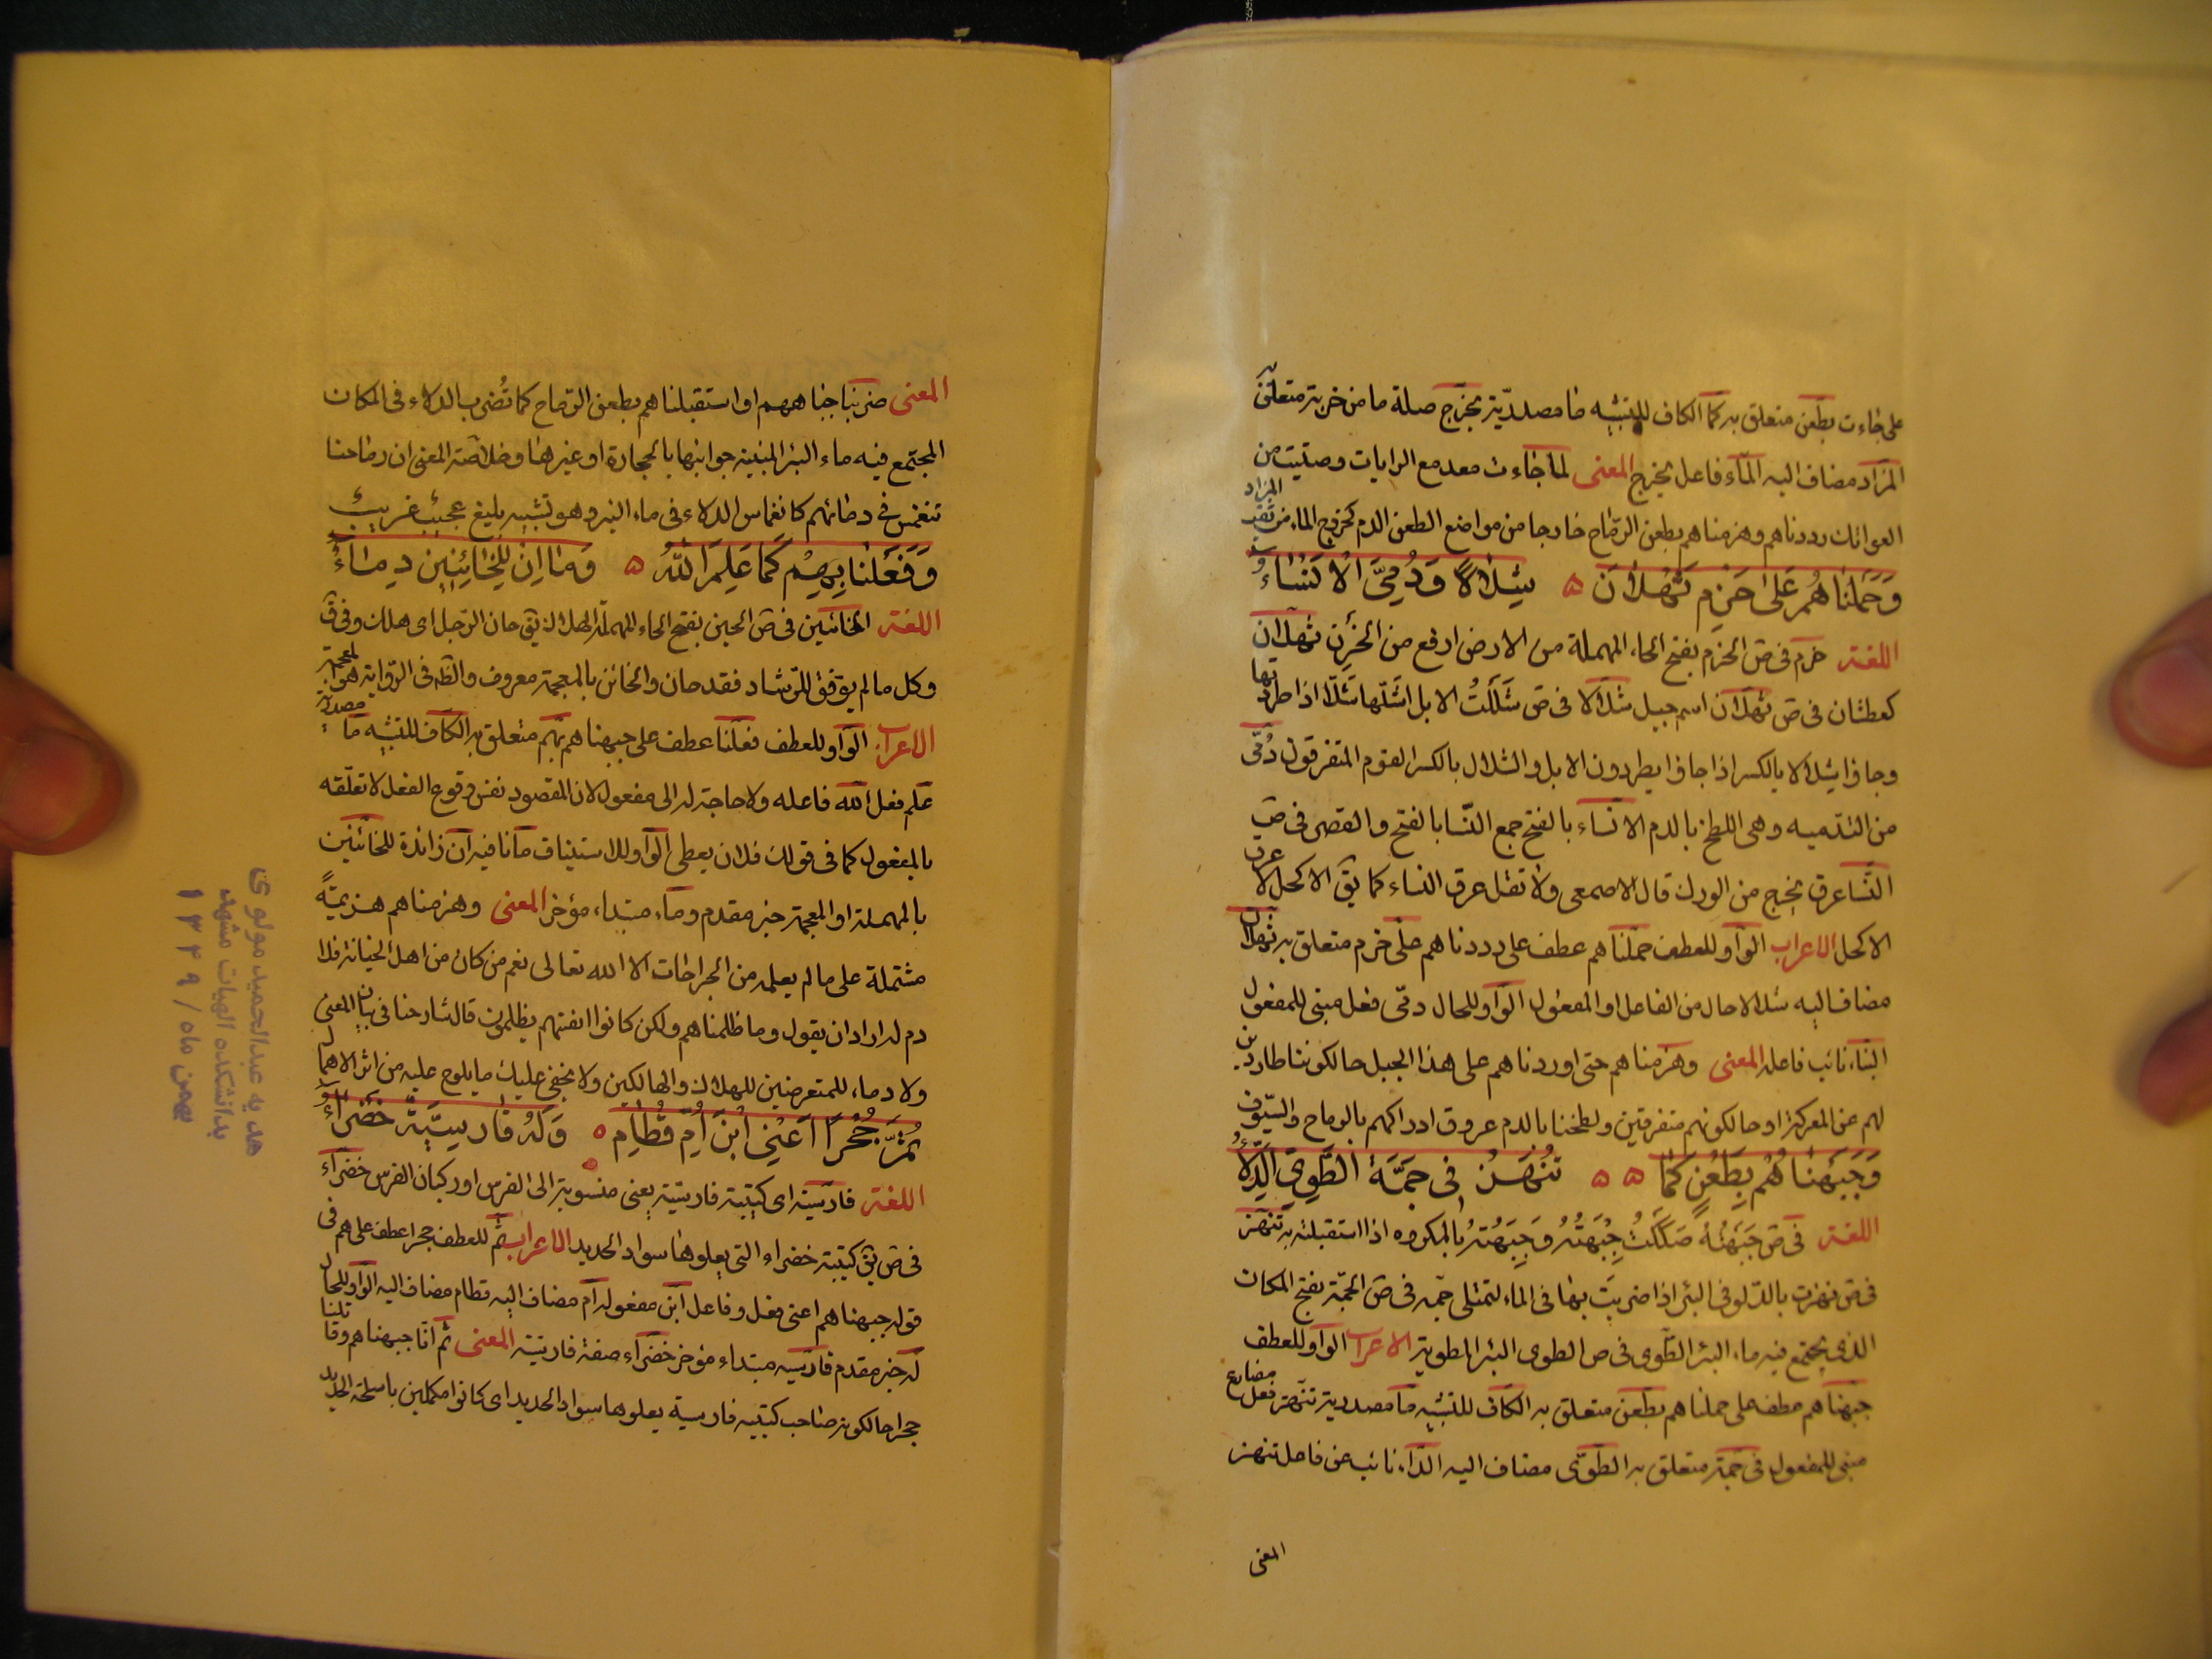 على جاءت بطعن متعلق به كما الكاف للتشبيه ما مصدريّة يخرج صلة ما من خربة متعلق به
المزاد مضاف اليه المآء فاعل يخرج المعنى لما جاءت معد مع الرايات وصيّت من
العواتك رددناهم وهزمناهم بطعن الرّماح خارجا من مواضع الطعن الدم كخروج الماء من ثقب المزاد
وَحَمَلْنَاهُمْ عَلىٰ حَزْمِ ثَهْلَانَ ه شِلَالًا وَدُمِّيَ الْاَنْسَاءُ
اللغة حزم فى ص الحزم بفتح الحاء المهملة من الارض ارفع من الحَزْن ثهلان
كعطشان فى ص ثهلان اسم جبل شلالا فى ص شَلَلْتُ الابل اَشُلّها شَلّا اذا طردتها
وجاؤا شِلالا بالكسر اذا جاؤا يطردون الابل والشلال بالكسر القوم المتفرقون دُمّى
من التدميه وهى اللطخ بالدم الانساء بالفتح جمع النّسا بالفتح والقصر فى ص
النَّسا عرق يخرج من الورك قال الاصمعى ولا تقل عرق النساء كما يق الاكحل لا عرق
الاكحل الاعراب الواو للعطف حملنا هم عطف على رددناهم على حزم متعلق به ثهلان
مضاف اليه شلالا حال من الفاعل او المفعول الواو للحال دمّى فعل مبنى للمفعول
النساء نائب فاعله المعنى وهزمناهم حتى اوردناهم على هذا الجبل حالكوننا طاردين
لهم عن المعركة او حالكونهم متفرقين ولطخنا بالدم عروق اوراكهم بالرماح والسّيوف
وَجَبَهْنَاهُمْ بِطَعْنٍ كَمَا ه ه تُنْهَزُ فِى جَمَّةِ الطَّوِىِّ الدِّلَاءُ
اللغة فى ص جَبَهْتُهُ صَكَكْتُ جَبْهَتَهُ وَجَبَهْتُهُ بالمكروه اذا استقبلته به تنهز
فى ص نهزت بالدّلو فى البئر اذا ضربت بها فى الماء لتمتلى جمّة فى ص الجمّة بفتح المكان
الذى يجتمع فيه ماء البئر الطّوى فى ص الطوى البئر المطوية الاعراب الواو للعطف
جبهناهم عطف على حملناهم بطعن متعلق به الكاف للتشبيه ما مصدرية تنهز فعل مضارع
مبنى للمفعول فى جمّة متعلق به الطوّى مضاف اليه الدّلاء نائب عن فاعل تنهز
المعنى
المعنى ضربنا جباههم او استقبلناهم بطعن الرّماح كما تُضرب الدلاء فى المكان
المجتمع فيه ماء البئر المبنية جوانبها بالحجارة او غيرها وخلاصة المعنى ان رماحنا
تنغمس فى دمائهم كانغماس الدلاء فى ماء البئر وهو تشبيه بليغ عجيب غريب
وَفَعَلْنَا بِهِمْ كَمَا عَلِمَ اللّٰهُ ه وَمَا اِنْ لِلْخَائِنِينَ دِمَاءُ
اللغة الخائنين فى ص الحين بفتح الحاء المهملة الهلاك يق حان الرّجل اى هلك وفى ق
وكل ما لم يوفق للرّشاد فقد حان والخائن بالمعجمة معروف والظّ فى الرّواية هو المعجمة
الاعراب الواو للعطف فعلنا عطف على جبهناهم بهم متعلق به الكاف للتشبيه ما مصدريّة
علم فعل الله فاعله ولا حاجة له الى مفعول لان المقصود نفس وقوع الفعل لا تعلّقه
بالمفعول كما فى قولك فلان يعطى الواو للاستيناف ما نافيه ان زائدة للخائنين
بالمهملة او المعجمة خبر مقدم وماء مبتداء مؤخر المعنى وهزمناهم هزيمةً
مشتملة على ما لم يعلمه من الجراحات الا الله تعالى نعم من كان من اهل الخيانة فلا
دم له اراد ان يقول وما ظلمناهم ولكن كانوا انفسهم يظلمون قال شارحنا فى بيان المعنى
ولا دماء للمتعرضين للهلاك والهالكين ولا يخفى عليك ما يلوح عليه من اثر الاهمال
ثُمَّ حُجْرًا اَعْنِى ابْنَ اُمِّ قَطَامِ ه وَلَهُ فَارِسِيَّةٌ خَضْرَاءُ
اللغة فارسية اى كتيبة فارسيّة يعنى منسوبة الى الفرس او ركبان الفرس خضراء
فى ص يق كتيبة خضراء التى يعلوها سواد الحديد الاعراب ثم للعطف حجرا عطف على هم فى
قوله جبهناهم اعنى فعل وفاعل ابن مفعوله ام مضاف اليه قطام مضاف اليه الواو للحال
له خبر مقدم فارسيه مبتداء مؤخر خضراء صفة فارسيّة المعنى ثم انّا جبهناهم وقاتلنا
حجرا حالكونه صاحب كتيبه فارسية يعلوها سواد الحديد اى كانوا مكملين باسلحة الحديد
هديه عبدالحميد مولوى
بدانشكده الهيات مشهد
بهمن ماه / ١٣٤٩